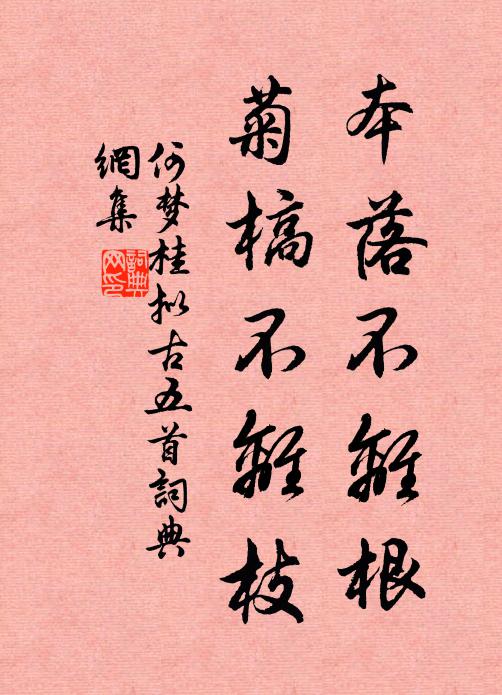 本落不離根
菊槁不離枝
何梦桂拟古五首詞典
網集
詞典
网印